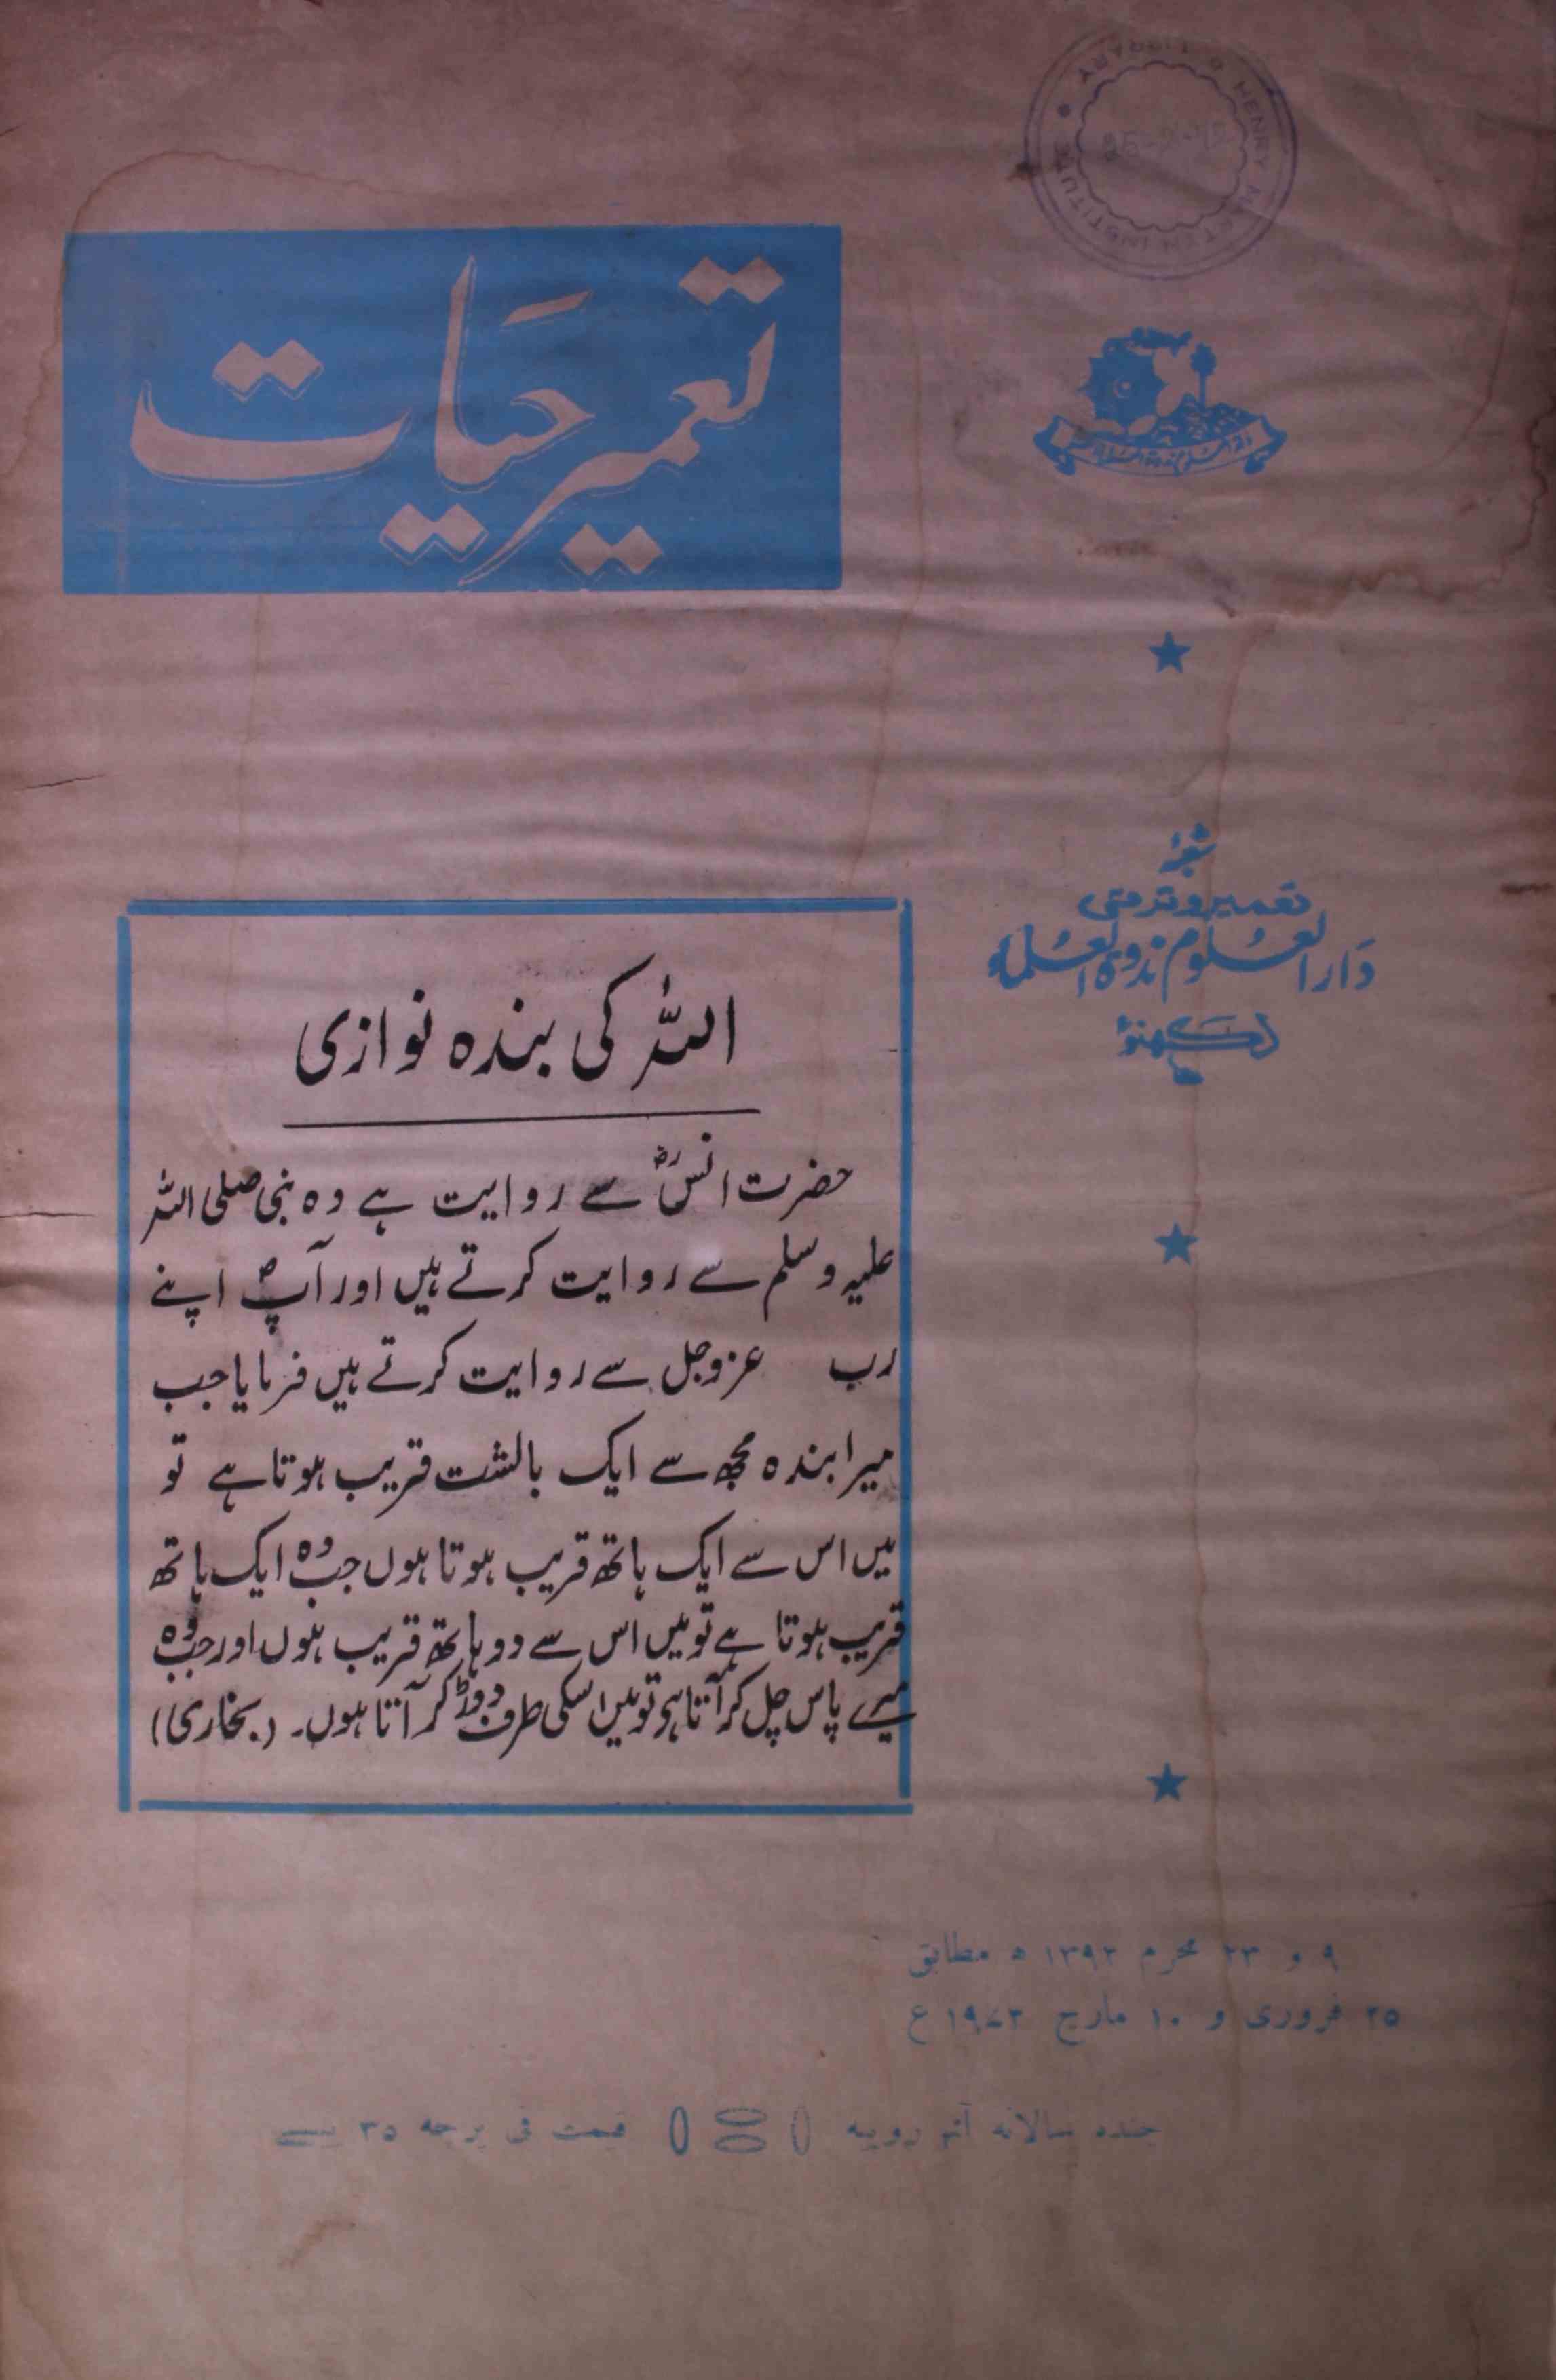 تعمیر حیات
شعبۂ
تعمیر و ترقی
دار العلوم ندوۃ العلماء
لکھنؤ
اللہ کی بندہ نوازی
حضرت انسؓ سے روایت ہے وہ نبی صلی اللہ
علیہ وسلم سے روایت کرتے ہیں اور آپؐ اپنے
رب عزوجل سے روایت کرتے ہیں فرمایا جب
میرا بندہ مجھ سے ایک بالشت قریب ہوتا ہے تو
میں اس سے ایک ہاتھ قریب ہوتا ہوں جب وہ ایک ہاتھ
قریب ہوتا ہے تو میں اس سے دو ہاتھ قریب ہوں اور جب وہ
میرے پاس چل کر آتا ہے تو میں اسکی طرف دوڑ کر آتا ہوں۔ (بخاری)
۹ و ۲۳ محرم ۱۳۹۳ ہ مطابق
۲۵ فروری و ۱۰ مارچ ۱۹۷۳ ع
چندہ سالانہ آٹھ روپیہ قیمت فی پرچہ ۳۵ پیسے
HENRY MARTYN INSTITUTE LIBRARY